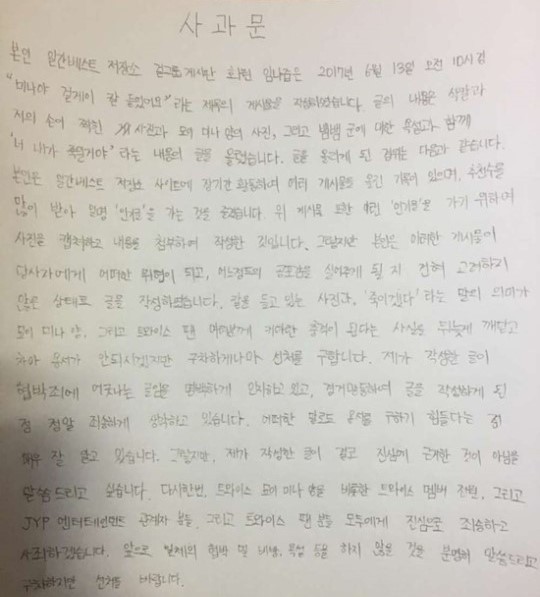 사과문
본인 일간베스트 저장소 걸그룹게시판 회원 은 2017년 6월 13일 오전 10시경
"미나야 걸게이 칼 들었어요" 라는 제목의 게시물을 작성하였습니다. 글의 내용은 식칼과
저의 손이 찍힌 사진과 묘이 미나 양의 사진, 그리고 뱀뱀 군에 대한 욕설과 함께
'너 내가 죽인거야' 라는 내용의 글을 올렸습니다. 글을 올리게 된 경위는 다음과 같습니다.
본인은 일간베스트 저장소 사이트에 장기간 활동하며 여러 게시물을 올린 기록이 있으며, 추천수를
많이 받아 일명 '인기글'을 가는 것을 즐겼습니다. 위 게시물 또한 '인기글'을 가기 위하여
사진을 캡쳐하고 내용을 첨부하여 작성한 것입니다. 그렇지만 본인은 이러한 게시물이
당사자에게 어떠한 위협이 되고, 어느정도의 공포감을 심어주게 될 지 전혀 고려하지
않은 상태로 글을 작성하였습니다. 칼을 들고 있는 사진과, '죽이겠다' 라는 말의 의미가
묘이 미나 양, 그리고 트와이스 팬 여러분께 커다란 충격이 된다는 사실을 뒤늦게 깨닫고
차마 용서가 안되시겠지만 구차하게나마 선처를 구합니다. 제가 작성한 글이
협박죄에 어긋나는 글임을 명백하게 인지하고 있고, 글을 작성하게 된
점 정말 죄송하게 생각하고 있습니다. 어떠한 말로도 용서를 구하기 힘들다는 점
매우 잘 알고 있습니다. 그렇지만, 제가 작성한 글이 결코 진심에 근거한 것이 아님을
말씀드리고 싶습니다. 다시한번, 트와이스 묘이 미나 양을 비롯한 트와이스 멤버 전원, 그리고
JYP 엔터테인먼트 관계자 분들, 그리고 트와이스 팬 분들 모두에게 진심으로 죄송하고
사죄하겠습니다. 앞으로 일체의 협박 및 비방, 욕설 등을 하지 않을 것을 분명히 말씀드리고
구차하지만 선처를 바랍니다.